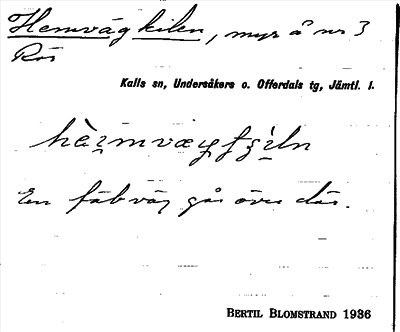 Hemvägkilen, myr å nr 3
Rör
Kalls sn, Undersåkers o. Offerdals tg, Jämtl. l.
En fäbväg går över där.
BERTIL BLOMSTRAND 1936